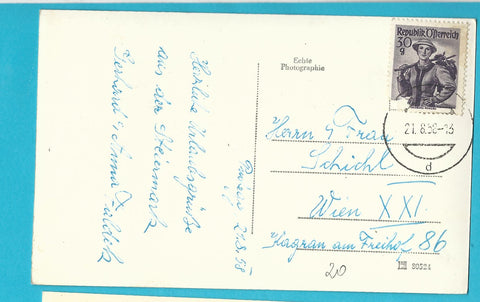 Herzliche Urlaubsgrüße
aus der Steiermark
Gerhard u. Anna
21.8.58
Echte
Photographie
Republik Österreich
30
g
21.8.58-13
d
Herrn u Frau
Schichl
Wien XXI.
Kagran am Freihof 86
20
80524